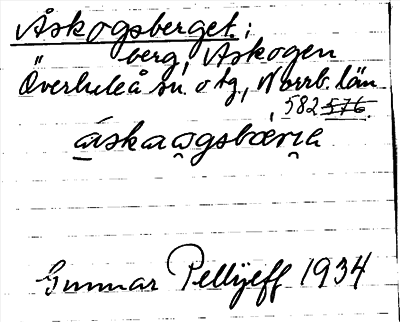 Åskogsberget:
berg, Askogen
Överluleå sn. o tg, Norrb. län
582 576.
áskaǫgsbærjɛ
Gunnar Pellijeff 1934